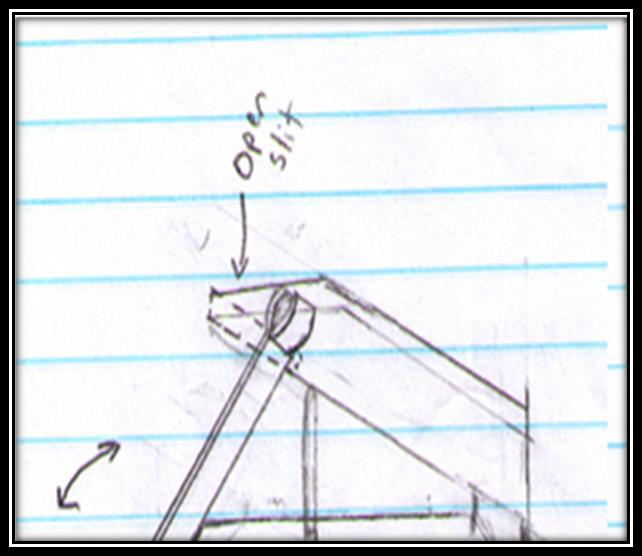 Open
slit